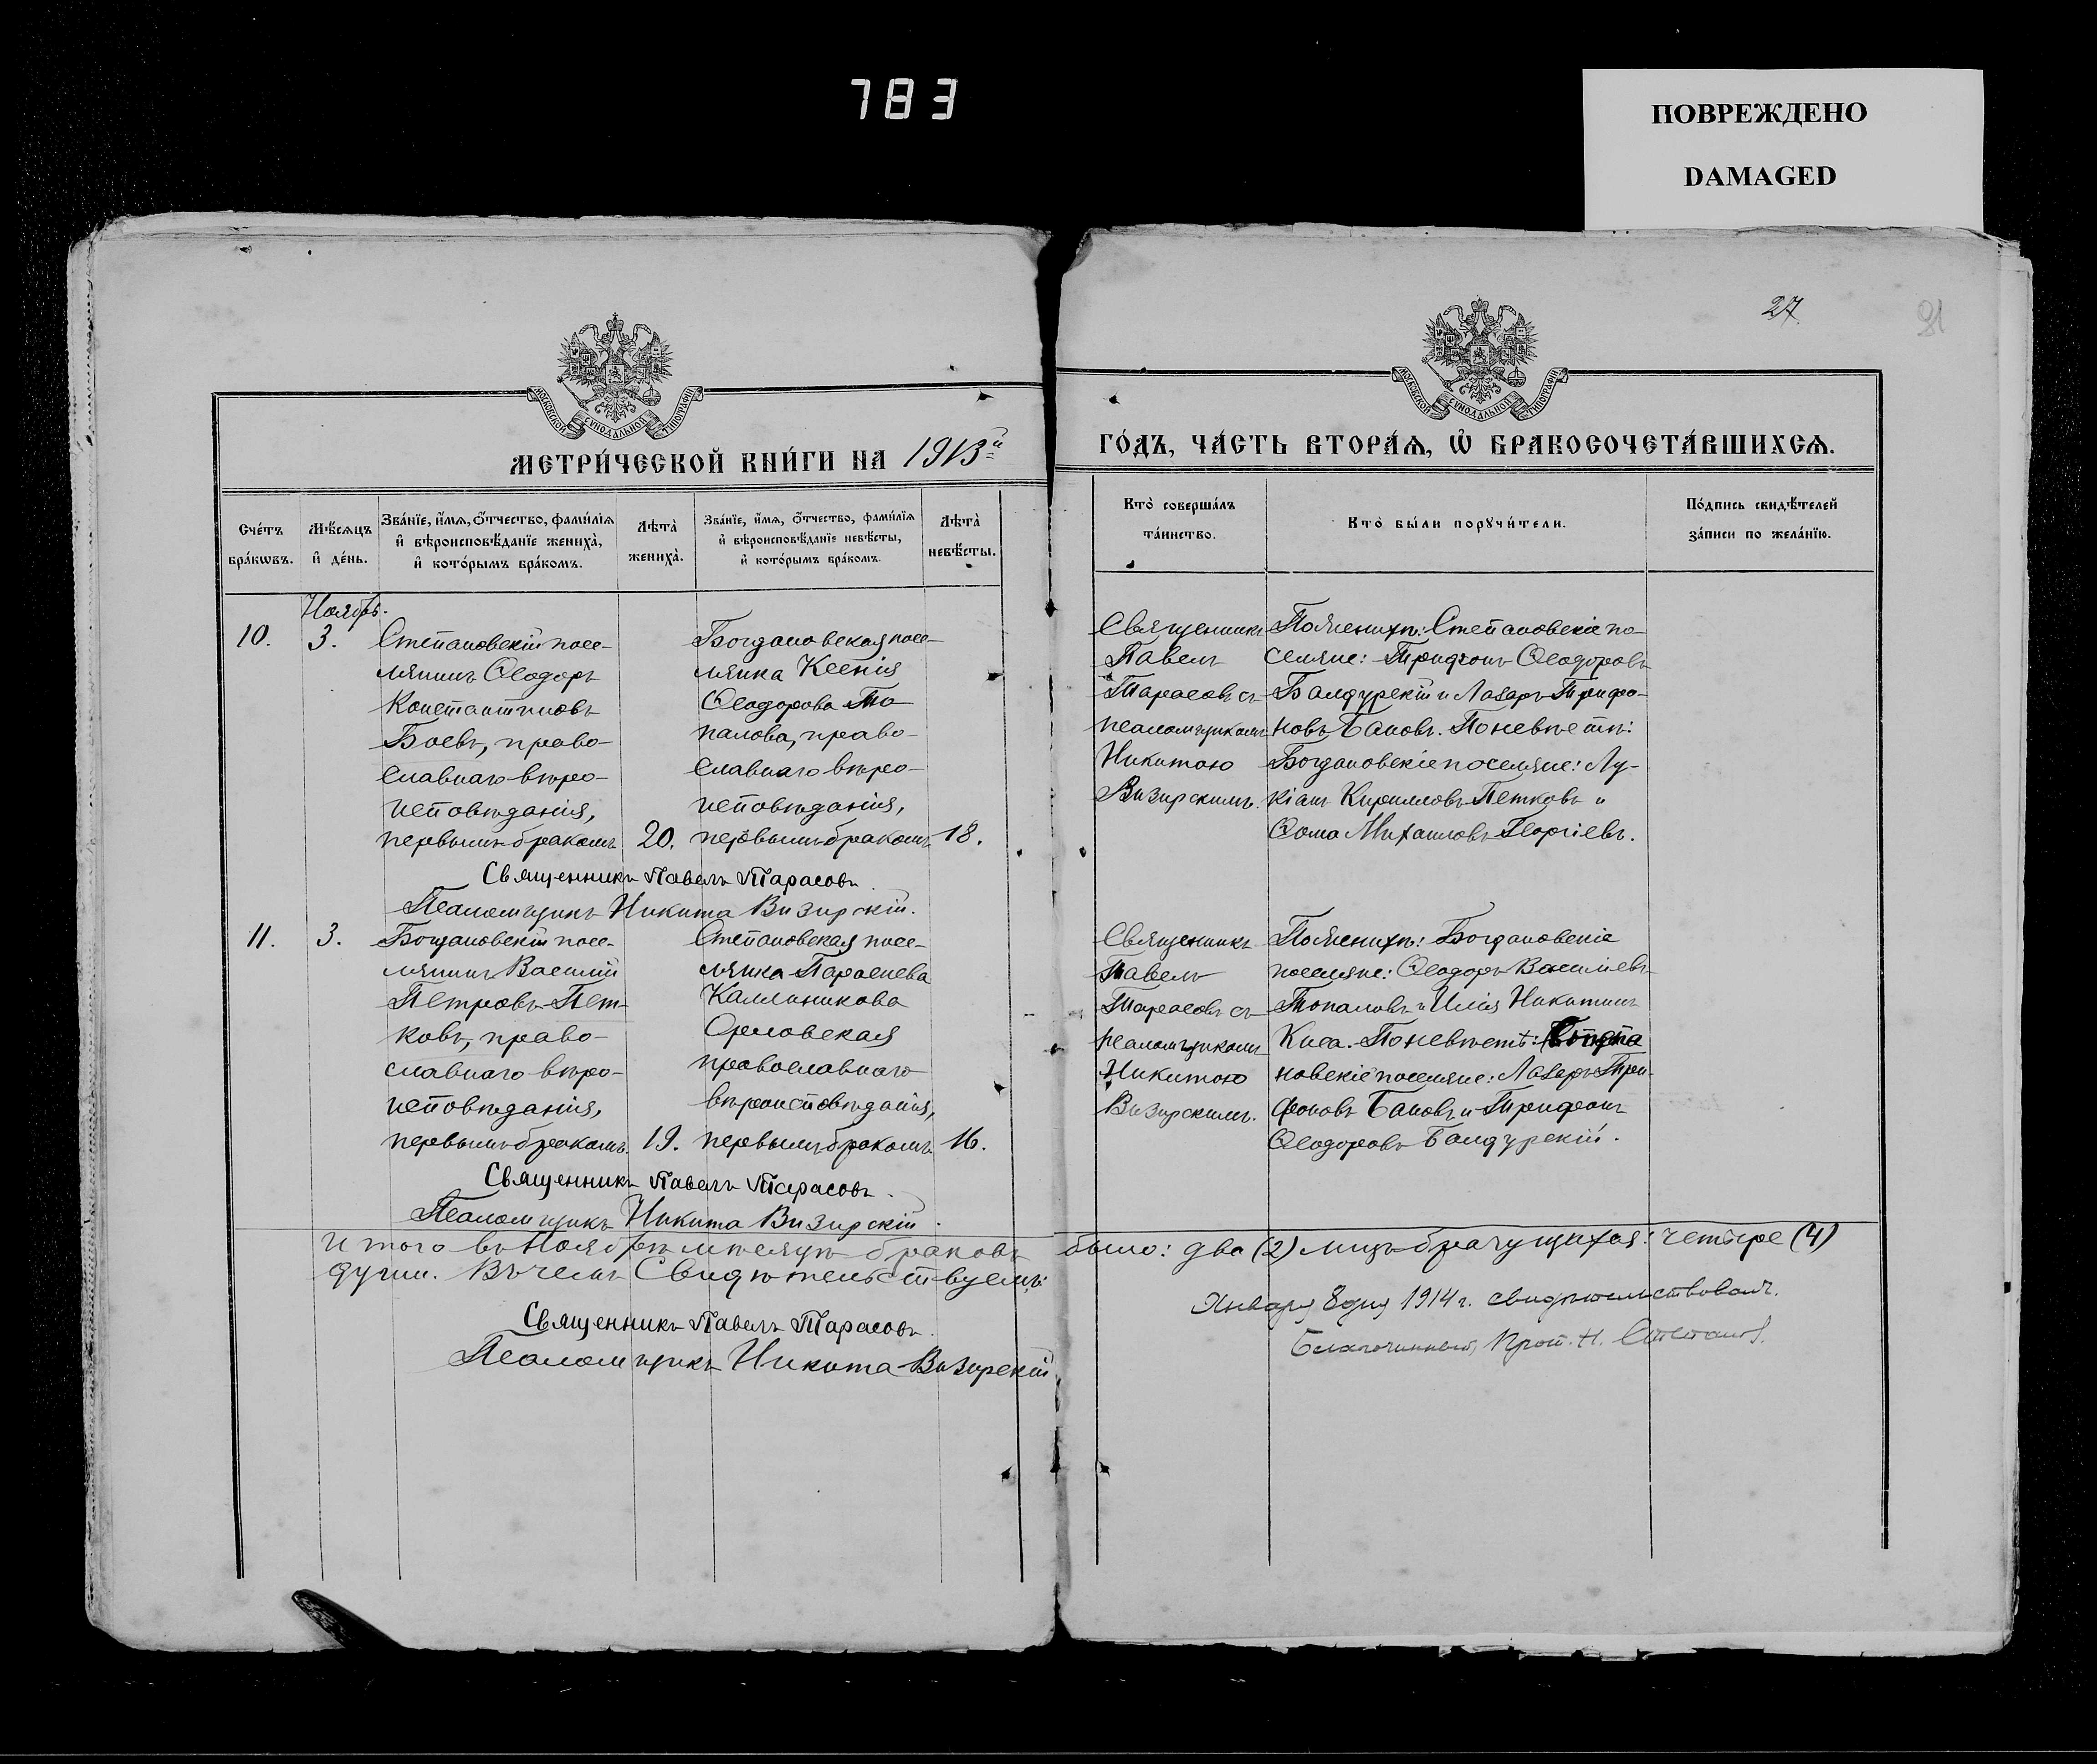 783
ПОВРЕЖДЕНО
DAMAGED
27
91
МОСКОВСКОЙ СѴНОДАЛЬНОЙ ТИПОГРАФІИ
МОСКОВСКОЙ СѴНОДАЛЬНОЙ ТИПОГРАФІИ
МЕТРИ́ЧЕСКОЙ КНИ́ГИ НА 1913й
ГО́ДЪ, ЧА́СТЬ ВТОРА́Ѧ, Ѽ БРАКОСОЧЕТА́ВШИХСѦ.
Сче́тъ бра́кѡвъ.
Мѣ́сѧцъ и҆ де́нь.
Зва́нїе, и҆́мѧ, ѻ҆́тчество, фами́лїѧ и҆ вѣроисповѣ́данїе жениха̀, и҆ кото́рымъ бра́комъ.
Лѣта̀ жениха̀.
Зва́нїе, и҆́мѧ, ѻ҆́тчество, фами́лїѧ и҆ вѣроисповѣ́данїе невѣ́сты, и҆ кото́рымъ бра́комъ.
Лѣта̀ невѣ́сты.
Кто̀ соверша́лъ та́инство.
Кто̀ бы́ли порꙋчи́тели.
По́дпись свидѣ́телей за́писи по жела́нїю.
Ноябрь.
10.
3.
Степановскій посе-
лянинъ Ѳеодоръ
Константиновъ
Боевъ, право-
славнаго вѣро-
исповѣданія,
первымъ бракомъ
20.
Богдановская посе-
лянка Ксенія
Ѳеодорова То
палова, право-
славнаго вѣро-
исповѣданія,
первымъ бракомъ
18.
Священникъ
Павелъ
Тарасовъ съ
псаломщикомъ
Никитою
Визирскимъ.
По женихѣ: Степановскіе по-
селяне: Трифонъ Ѳеодоровъ
Балдурскій и Лазарь Трифо-
новъ Бановъ. По невѣстѣ:
Богдановскіе поселяне: Лу-
кіанъ Кирилловъ Петковъ и
Ѳома Михаиловъ Георгіевъ.
Священникъ Павелъ Тарасовъ.
Псаломщикъ Никита Визирскій.
11.
3.
Богдановскій посе-
лянинъ Василій
Петровъ Пет-
ковъ, право-
славнаго вѣро-
исповѣданія,
первымъ бракомъ
19.
Степановская посе-
лянка Параскева
Каллиникова
Орловская
православнаго
вѣроисповѣданія,
первымъ бракомъ
16.
Священникъ
Павелъ
Тарасовъ съ
псаломщикомъ
Никитою
Визирскимъ.
По женихѣ: Богдановскіе
поселяне: Ѳеодоръ Василіевъ
Топаловъ и Илія Никитинъ
Киса. По невѣстѣ: Степа
новскіе поселяне: Лазарь Три-
фоновъ Бановъ и Трифонъ
Ѳеодоровъ Балдурскій.
Священникъ Павелъ Тарасовъ.
Псаломщикъ Никита Визирскій.
Итого въ Ноябрѣ мѣсяцѣ браковъ было: два (2) лицъ брачущихся: четыре (4)
души. Въ чемъ свидѣтельствуемъ:
Священникъ Павелъ Тарасовъ.
Псаломщикъ Никита Визирскій
Января 8 дня 1914 г. свидѣтельствовалъ.
Благочинный, Прот. Н. Степановъ.